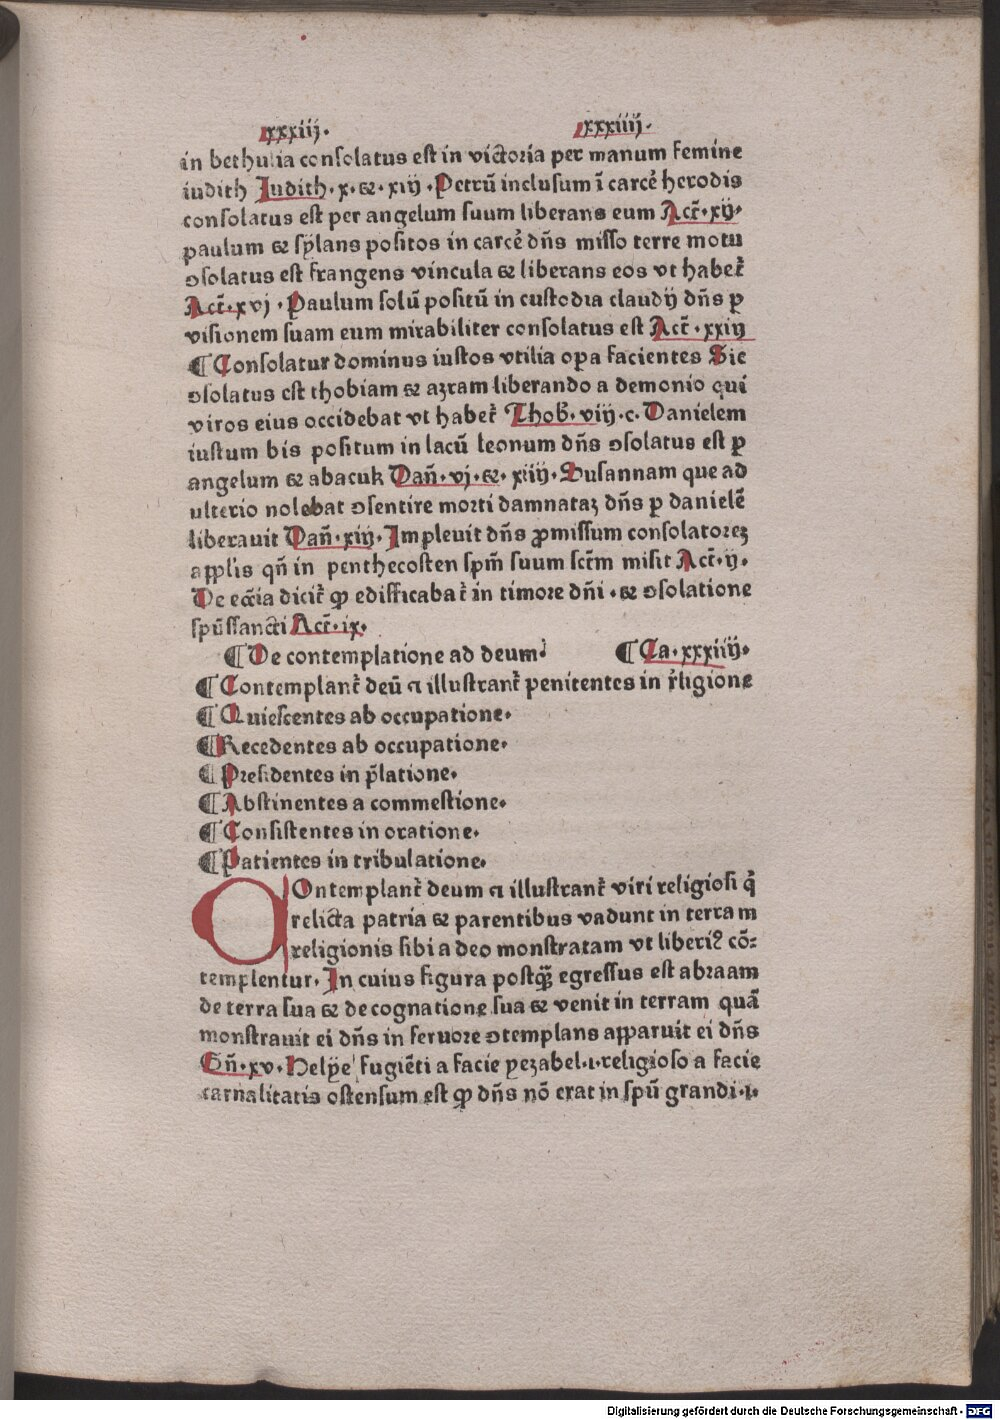 xxxiij. xxxiiij.
in bethulia conſolatus eſt in victoria per manum femine
iudith Judith. x. ⁊. xiij. Petrū incluſum ī carcē herodis
conſolatus eſt per angelum ſuum liberans eum Act̄. xij.
paulum ⁊ ſylans poſitos in carcē dn̄s miſſo terre motu
ꝯſolatus eſt frangens vincula ⁊ liberans eos vt habet᷑
Act̄. xvj. Paulum ſolū poſitū in cuſtodia claudij dn̄s ꝑ
viſionem ſuam eum mirabiliter conſolatus eſt Act̄. xxiij
¶ Conſolatur dominus iuſtos vtilia oꝑa facientes Sic
ꝯſolatus eſt thobiam ⁊ azram liberando a demonio qui
viros eius occidebat vt habet᷑ Thob̄. viij. c. Danielem
iuſtum bis poſitum in lacū leonum dn̄s ꝯſolatus eſt ꝑ
angelum ⁊ abacuk Dan̄. vj. ⁊. xiiij. Suſannam que ad
ulterio nolebat ꝯſentire morti damnataꝫ dn̄s ꝑ danielē
liberauit Dan̄. xiij. Impleuit dn̄s ꝓmiſſum conſolatoreꝫ
apl̄is qn̄ in penthecoſten ſpm̄ ſuum ſctm̄ miſit Act̄. ij.
De ecc̄ia dicit᷑ ꝙ edifficabat᷑ in timore dn̄i. ⁊ ꝯſolatione
ſpūſſancti Act̄. ix.
¶ De contemplatione ad deum. ¶ Ca. xxxiiij.
¶ Contemplant᷑ deū a illuſtrant᷑ penitentes in r̄ligione
¶ Quieſcentes ab occupatione.
¶ Recedentes ab occupatione.
¶ Preſidentes in p̄latione.
¶ Abſtinentes a commeſtione.
¶ Conſiſtentes in oratione.
¶ Patientes in tribulatione.
COntemplant᷑ deum a illuſtrant᷑ viri religioſi q̄
relicta patria ⁊ parentibus vadunt in terram
religionis ſibi a deo monſtratam vt liberiꝰ cō⸗
templentur. In cuius figura poſtq̄ꝫ egreſſus eſt abraam
de terra ſua ⁊ de cognatione ſua ⁊ venit in terram quā
monſtrauit ei dn̄s in feruore ꝯtemplans apparuit ei dn̄s
Gn̄. xv. Helye fugiēti a facie yezabel .i. religioſo a facie
carnalitatis oſtenſum eſt ꝙ dn̄s nō erat in ſpū grandi .i.
Digitalisierung gefördert durch die Deutsche Forschungsgemeinschaft - DFG